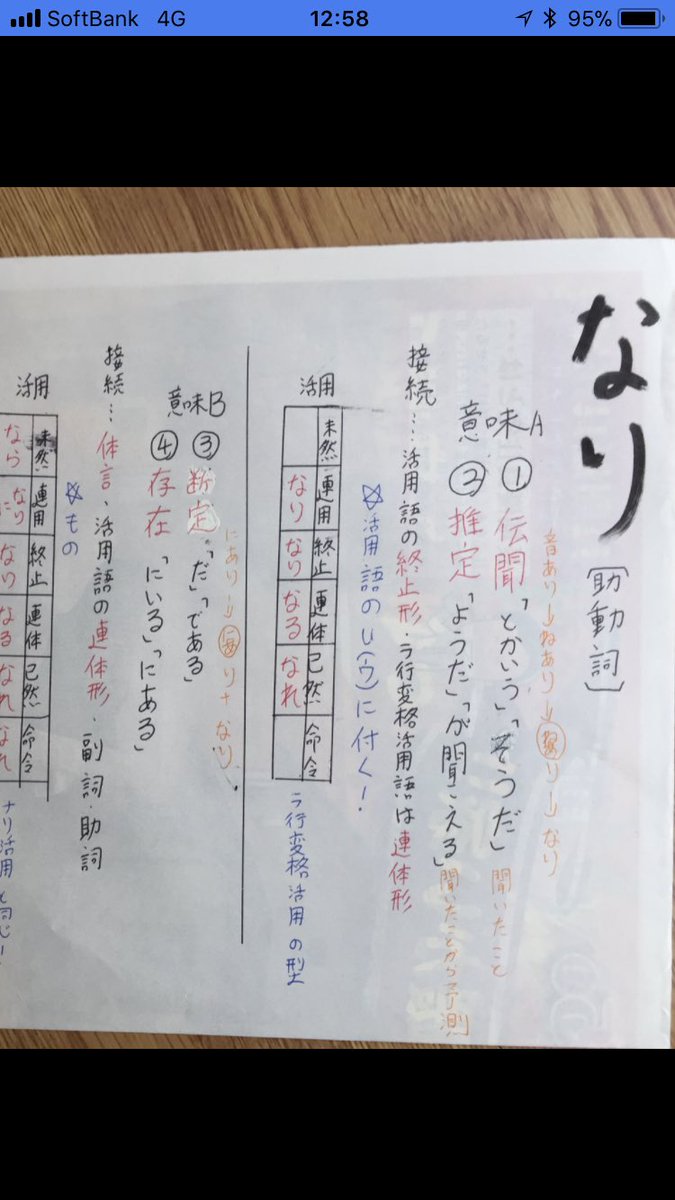 SoftBank 4G 12:58 95%
なり〔助動詞〕
音あり→ねあり→り→なり
意味A ①伝聞「とかいう」「そうだ」聞いたこと
②推定「ようだ」「が聞こえる」聞いたことから予測
接続…活用語の終止形・ラ行変格活用語は連体形
☆活用語のU(ウ)に付く!
活用
未然 連用 終止 連体 已然 命令
なり なり なる なれ
ラ行変格活用の型
にあり→り→なり
意味B ③断定「だ」「である」
④存在「にいる」「にある」
接続…体言、活用語の連体形・副詞・助詞
☆もの
活用
未然 連用 終止 連体 已然 命令
なら なり に なり なる なれ なれ
ナリ活用と同じ!